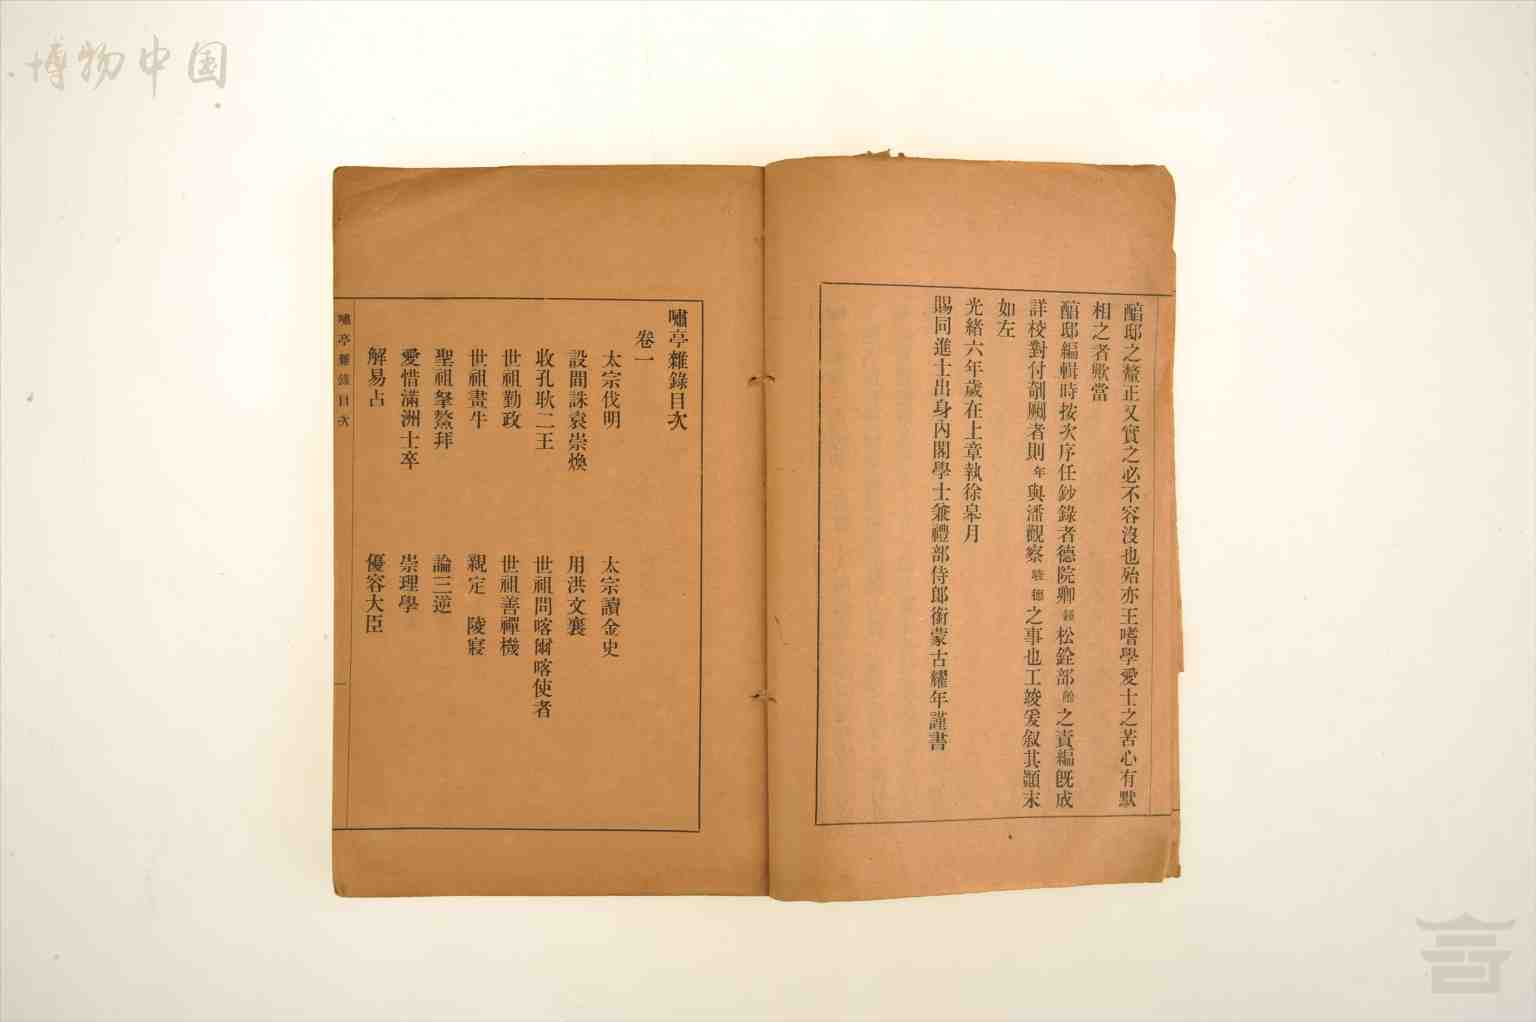 博物中国
醕邸之釐正又實之必不容沒也殆亦王嗜學愛士之苦心有默
相之者歟當
醕邸編輯時按次序任鈔錄者德院卿松銓部之責編旣成
詳校對付剞劂者則年與潘觀察駿德之事也工竣爰叙其顚末
如左
光緒六年歲在上章執徐皐月
賜同進士出身內閣學士兼禮部侍郎銜蒙古耀年謹書
嘯亭雜錄目次
卷一
太宗伐明 太宗讀金史
設間誅袁崇煥 用洪文襄
收孔耿二王 世祖問喀爾喀使者
世祖勤政 世祖善禪機
世祖畫牛 親定 陵寢
聖祖拏鰲拜 論三逆
愛惜滿洲士卒 崇理學
解易占 優容大臣
嘯亭雜錄目次